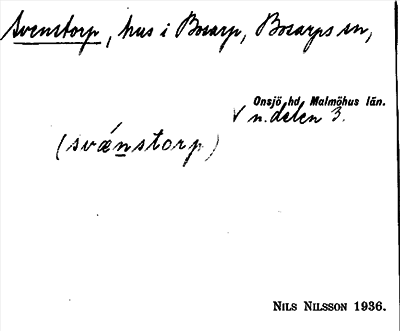 Svenstorp, hus i Bosarp, Bosarps sn,
Onsjö hd, Malmöhus län.
V n. delen 3.
(svǽnstorp)
NILS NILSSON 1936.